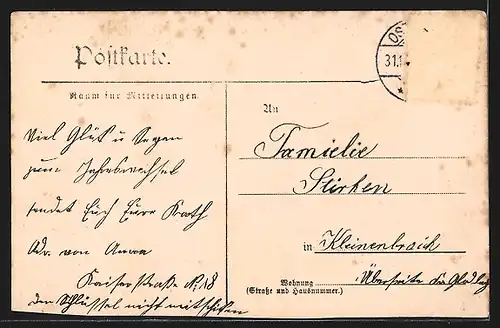 Postkarte.
Raum für Mitteilungen.
An
Viel Glück u Segen
zum Jahreswechsel
sendet Euch Eure Kath
Adr. von Anna
Kaiserstraße No. 18
den Schlüssel nicht mitschicken
Familie
Stirken
in Kleinenbroich
Wohnung
(Straße und Hausnummer.)
31.1